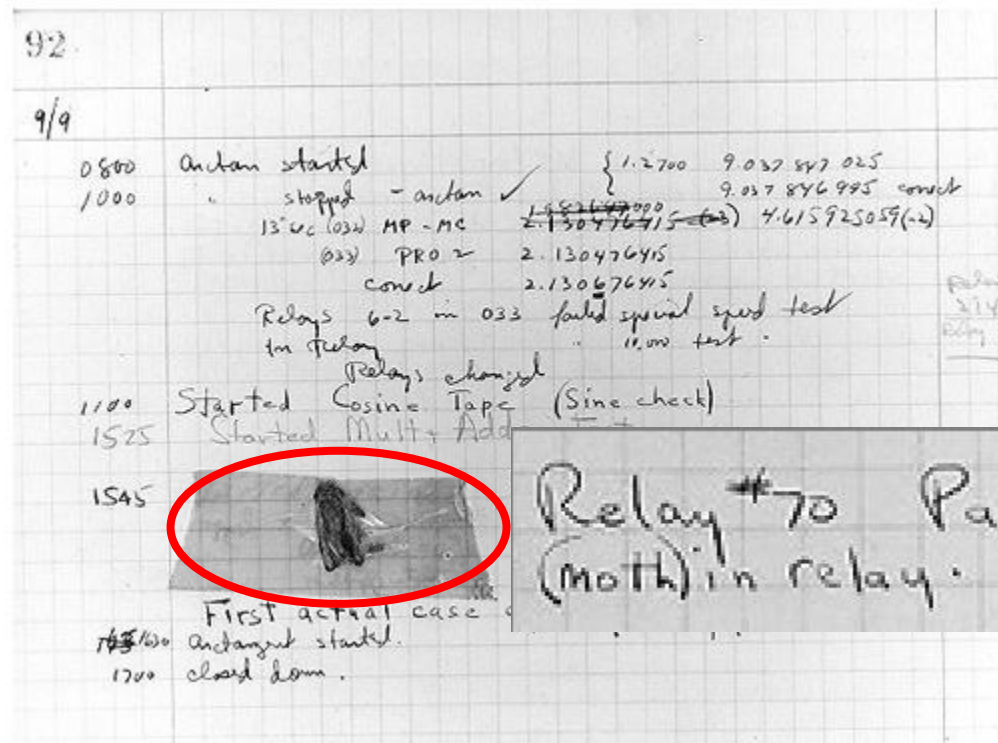 92
9/9
0800 arctan started { 1.2700 9.037 847 025
1000 " stopped - arctan ✓ 9.037 846 995 correct
13" uc (032) MP - MC 2.130476415 (-3) 4.615925059(-2)
(033) PRO 2 2.130476415
correct 2.130676415
Relays 6-2 in 033 failed special speed test
In Relay " 10.000 test .
Relays changed
1100 Started Cosine Tape (Sine check)
1525 Started Mult + Adder
1545
Relay #70 Pa
(moth) in relay.
First actual case
1630 arctangent started.
1700 closed down .